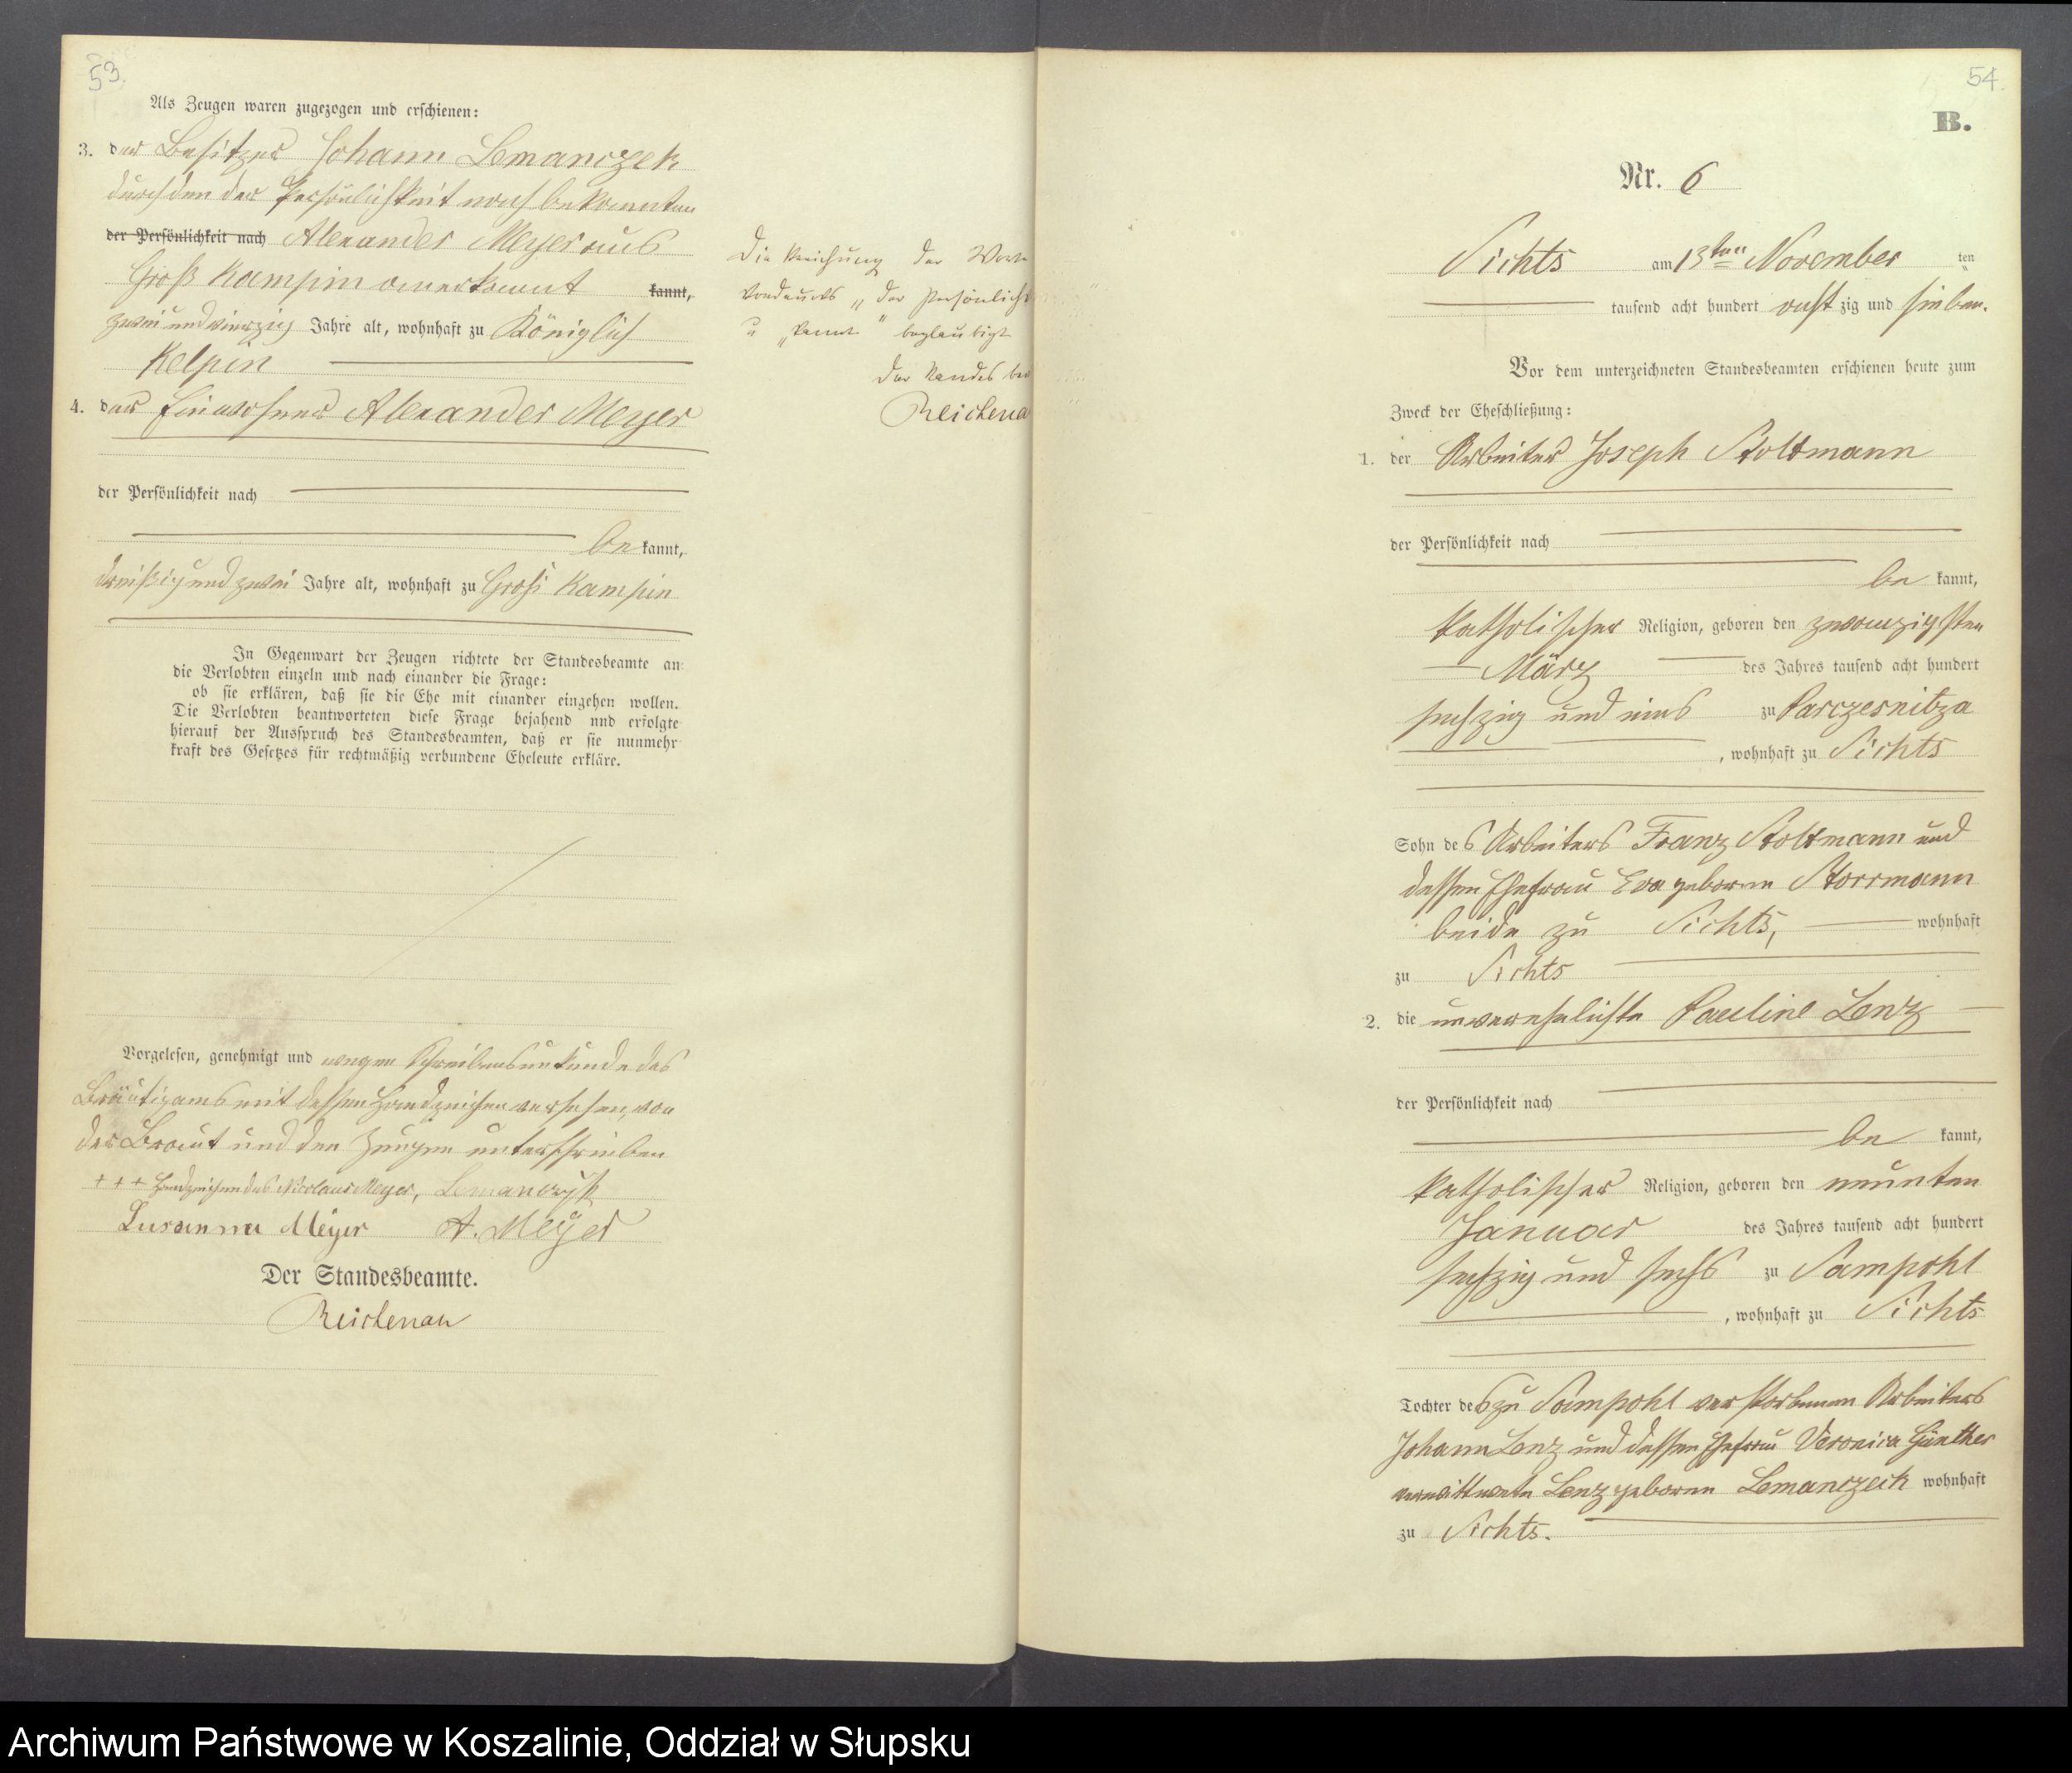 53.
Als Zeugen waren zugezogen und erschienen:
3. der Besitzer Johann Lemanczek
durch den der Persönlichkeit nach bekannten
der Persönlichkeit nach Alexander Meyer aus
Groß Kampin anerkannt kannt,
zwei und vierzig Jahre alt, wohnhaft zu Königlich
Kelpin
4. der Einwohner Alexander Meyer
der Persönlichkeit nach
be kannt,
dreißig und zwei Jahre alt, wohnhaft zu Groß Kampin
In Gegenwart der Zeugen richtete der Standesbeamte an
die Verlobten einzeln und nach einander die Frage:
ob sie erklären, daß sie die Ehe mit einander eingehen wollen.
Die Verlobten beantworteten diese Frage bejahend und erfolgte
hierauf der Ausspruch des Standesbeamten, daß er sie nunmehr
kraft des Gesetzes für rechtmäßig verbundene Eheleute erkläre.
Vorgelesen, genehmigt und wegen Schreibensunkunde des
Bräutigams mit dessen Handzeichen versehen, von
der Braut und den Zeugen unterschrieben
+++ Handzeichen des Nicolaus Meyer, Lemanczyk
Susanna Meyer A. Meyer
Der Standesbeamte.
Reichenau
Die Streichung der Worte
Vordrucks „der Persönlich
u „kannt" beglaubigt
Der Standesbea
Reichena
54.
B.
Nr. 6
Sichts am 13ten November ten
tausend acht hundert acht zig und sieben.
Vor dem unterzeichneten Standesbeamten erschienen heute zum
Zweck der Eheschließung:
1. der Arbeiter Joseph Stoltmann
der Persönlichkeit nach
be kannt,
katholischer Religion, geboren den zwanzigsten
März des Jahres tausend acht hundert
sechzig und eins zu Parczesnitza
, wohnhaft zu Sichts
Sohn des Arbeiters Franz Stoltmann und
dessen Ehefrau Eva geborene Storrmann
beide zu Sichts, wohnhaft
zu Sichts
2. die unverehelichte Pauline Lenz
der Persönlichkeit nach
be kannt,
katholischer Religion, geboren den neunten
Januar des Jahres tausend acht hundert
sechzig und sechs zu Sampohl
, wohnhaft zu Sichts
Tochter des zu Sampohl verstorbenen Arbeiters
Johann Lenz und dessen Ehefrau Veronica Günther
verwittwete Lenz geborene Lemanczeck wohnhaft
zu Sichts.
Archiwum Państwowe w Koszalinie, Oddział w Słupsku